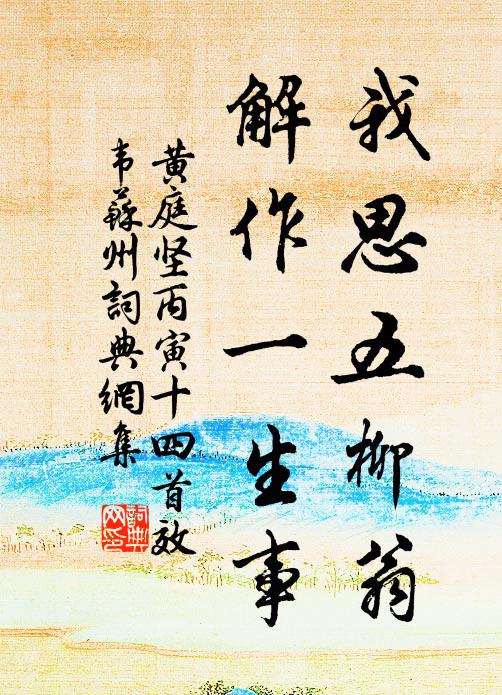 我思五柳翁
解作一生事
黄庭坚丙寅十四首效
韦蘇州詞典網集